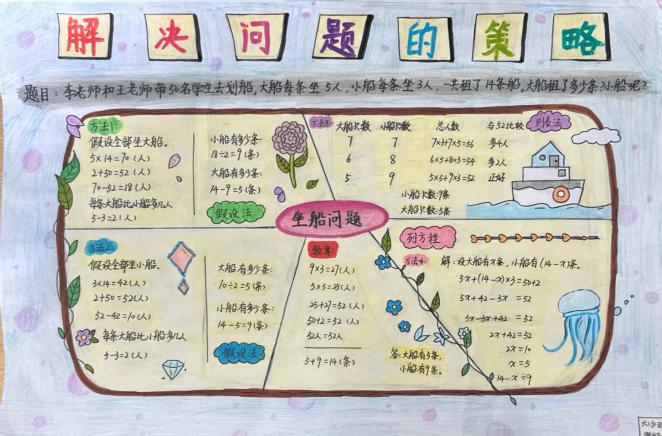 解决问题的策略
题目：李老师和王老师带50名学生去划船，大船每条坐5人，小船每条坐3人，一共租了14条船。大船租了多少条？小船呢？
方法1：
假设全部坐大船。
5×14=70（人）
2+50=52（人）
70-52=18（人）
每条大船比小船多几人
5-3=2（人）
小船有多少条：
18÷2=9（条）
大船有多少条：
14-9=5（条）
假设法
方法3
大船只数 小船只数 总人数 与52比较
列表法
7 7 7×3+7×5=56 多4人
6 8 6×5+8×3=54 多2人
5 9 5×5+9×3=52 正好
小船只数：9条
大船只数：5条
坐船问题
方法2
假设全部坐小船。
3×14=42（人）
2+50=52（人）
52-42=10（人）
每条大船比小船多几人
5-3=2（人）
大船有多少条：
10÷2=5（条）
小船有多少条：
14-5=9（条）
假设法
验算
9×3=27（人）
5×5=25（人）
25+27=52（人）
50+2=52（人）
52人=52人
5+9=14（条）
列方程
方法4
解：设大船有x条，小船有（14-x）条。
5x+（14-x）×3=50+2
5x+42-3x=52
5x-3x+42=52
2x+42=52
2x=10
x=5
14-x=9
答：大船有5条，
小船有9条。